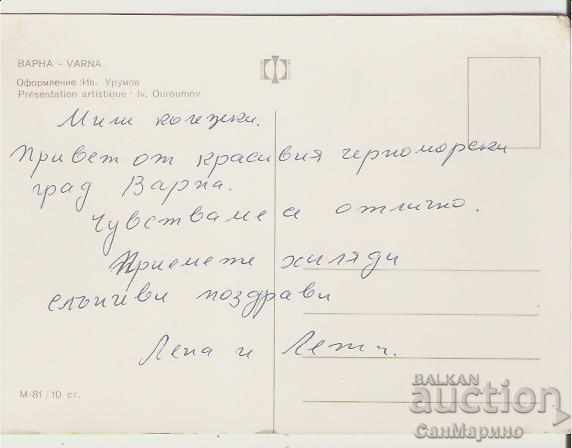 ВАРНА – VARNA
Оформление: Ив. Урумов
Présentation artistique: Iv. Ouroumov
Мили колежки.
Привет от красивия черноморски
град Варна.
Чувстваме се отлично.
Приемете хиляди
слънчеви поздрави
и
М-81/10 ст.
BALKAN
auction
СанМарино